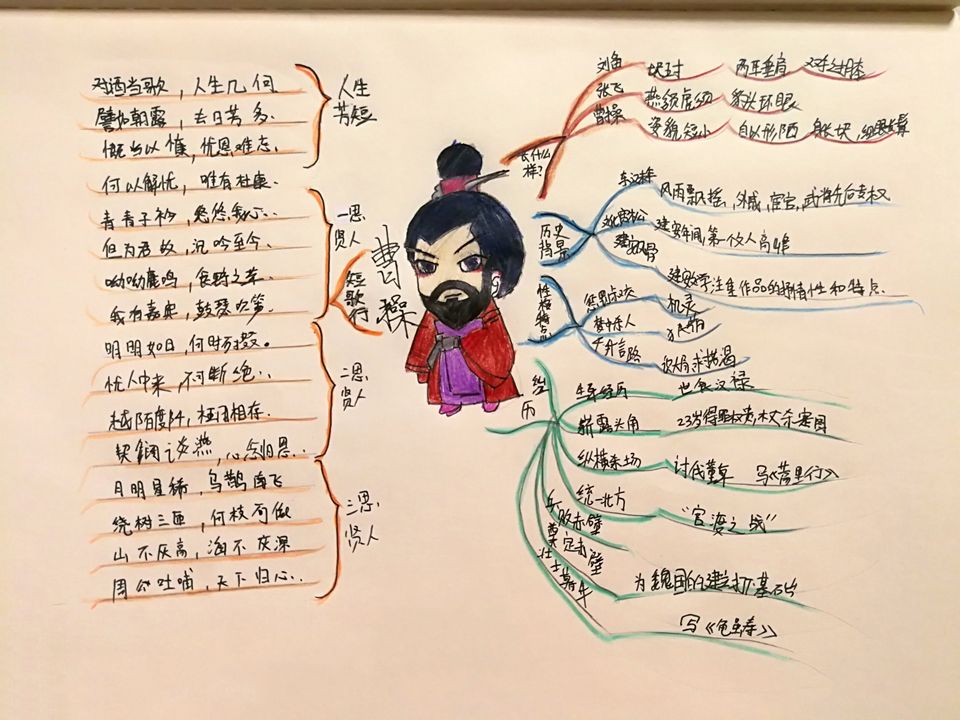 对酒当歌，人生几何
譬如朝露，去日苦多.
慨当以慷，忧思难忘.
何以解忧，唯有杜康.
青青子衿，悠悠我心..
但为君故，沉吟至今.
呦呦鹿鸣，食野之苹.
我有嘉宾，鼓瑟吹笙.
明明如日，何时可掇。
忧从中来，不可断绝..
越陌度阡，枉用相存.
契阔谈燕，心念旧恩..
月明星稀，乌鹊南飞
绕树三匝，何枝可依
山不厌高，海不厌深
周公吐哺，天下归心..
人生
苦短
一思
贤人
二思
贤人
三思
贤人
短歌行
曹操
长什么样?
刘备
两耳垂肩
双手过膝
张飞
燕颔虎须
豹头环眼
曹操
姿貌短小
自以形陋
历史
背景
东汉末年
风雨飘摇,外戚,宦官,武将先后专权
建安年间,第一个文人高峰
建安风骨
性格特点
梦中杀人
机灵
广开言路
经历
世食汉禄
崭露头角
纵横杀场
讨伐董卓
写《蒿里行》
统一北方
"官渡之战"
兵败赤壁
奠定
壮士暮年
为魏国的建立打下基础
写《龟虽寿》